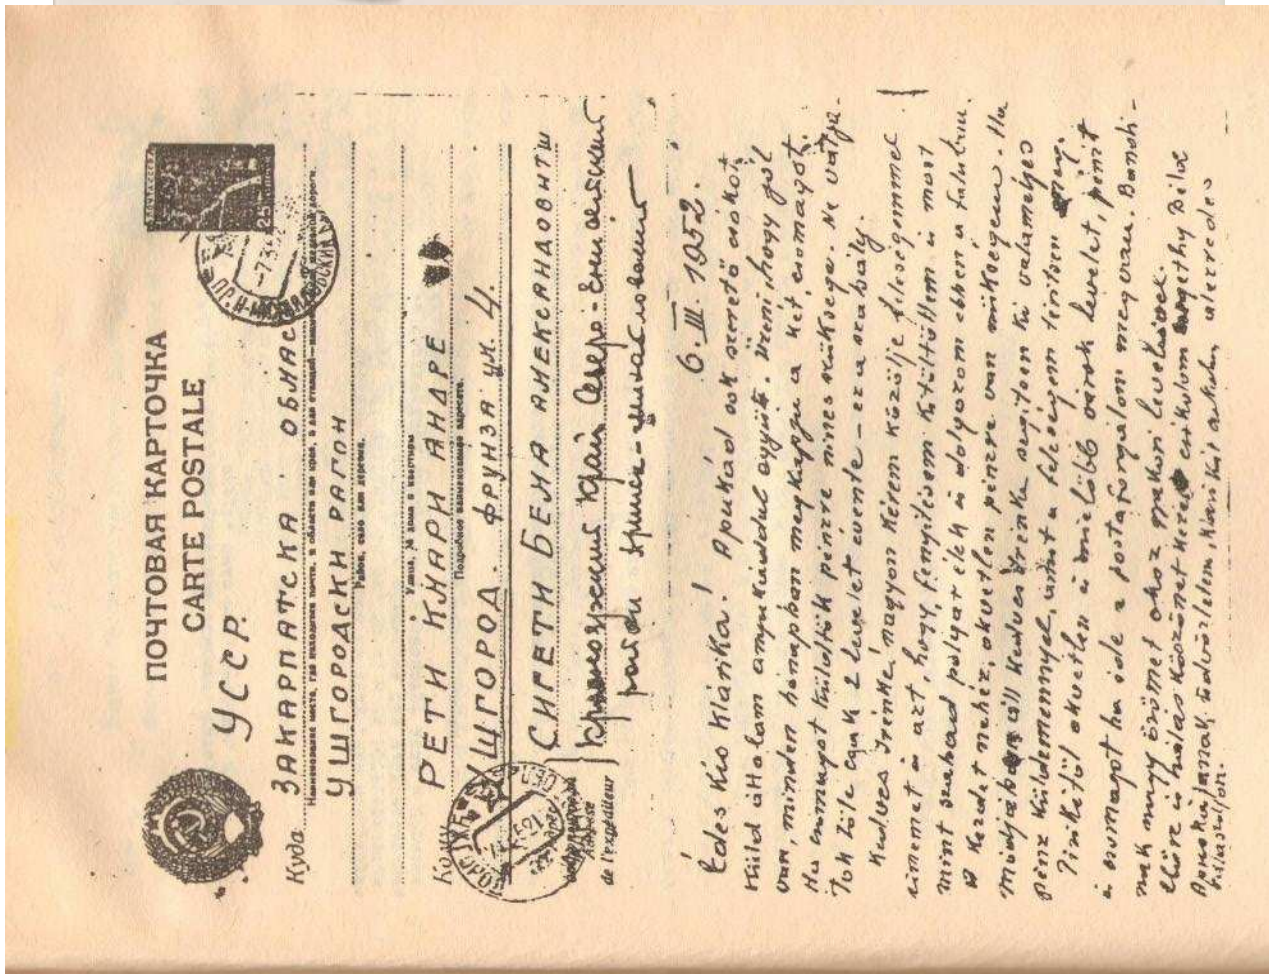 ПОЧТОВАЯ КАРТОЧКА
CARTE POSTALE
УССР.
Куда ЗАКАРПАТСКА ОБЛАС
Наименование места, где находится почта, и области или края, а для станций — наименование железной дороги.
УШГОРОДСКИ РАГОН
Район, село или деревня.
Улица, № дома и квартиры
Кому РЕТИ КЛАРИ АНДРЕ
Подробное наименование адресата.
УЩГОРОД. ФРУНЗА УК. 4.
СИГЕТИ БЕЛА АЛЕКСАНДОВИТШ
Адрес отправителя
Adresse
de l'expéditeur
Красноярский край Северо-Енисейский
район
6. III. 1952.
Édes kis Klárika! Apukád sok szerető csókot
küld általam anyukáddal együtt. Üzeni, hogy jól
van, minden hónapban megkapja a két csomagot.
Ha csomagot küldtök pénzre nincs szüksége. Ne várja-
tok tőle csak 2 levelet évente – ez a szabály.
Kedves Irénke, nagyon kérem közölje feleségemmel
címemet és azt, hogy fennyitésem kitöltöttem és most
mint szabad polgár élek és dolgozom ebben a faluban.
A kezdet nehéz, okvetlen pénzre van szükségem. Ha
módjában áll Kedves Irénke segítsen ki valamelyes
pénz küldeménnyel, amit a feleségem térítsen meg.
Pirikétől okvetlen és mielőbb várok levelet, pénzt
és csomagot ha ide a postaforgalom megvan. Bánohi-
nak nagy örömet okoz makói levelük.
Előre is hálás köszönet kézcsókolom Szigethy Béla
Annokújannak üdvözletem, Klárikát arkohn, alezredes